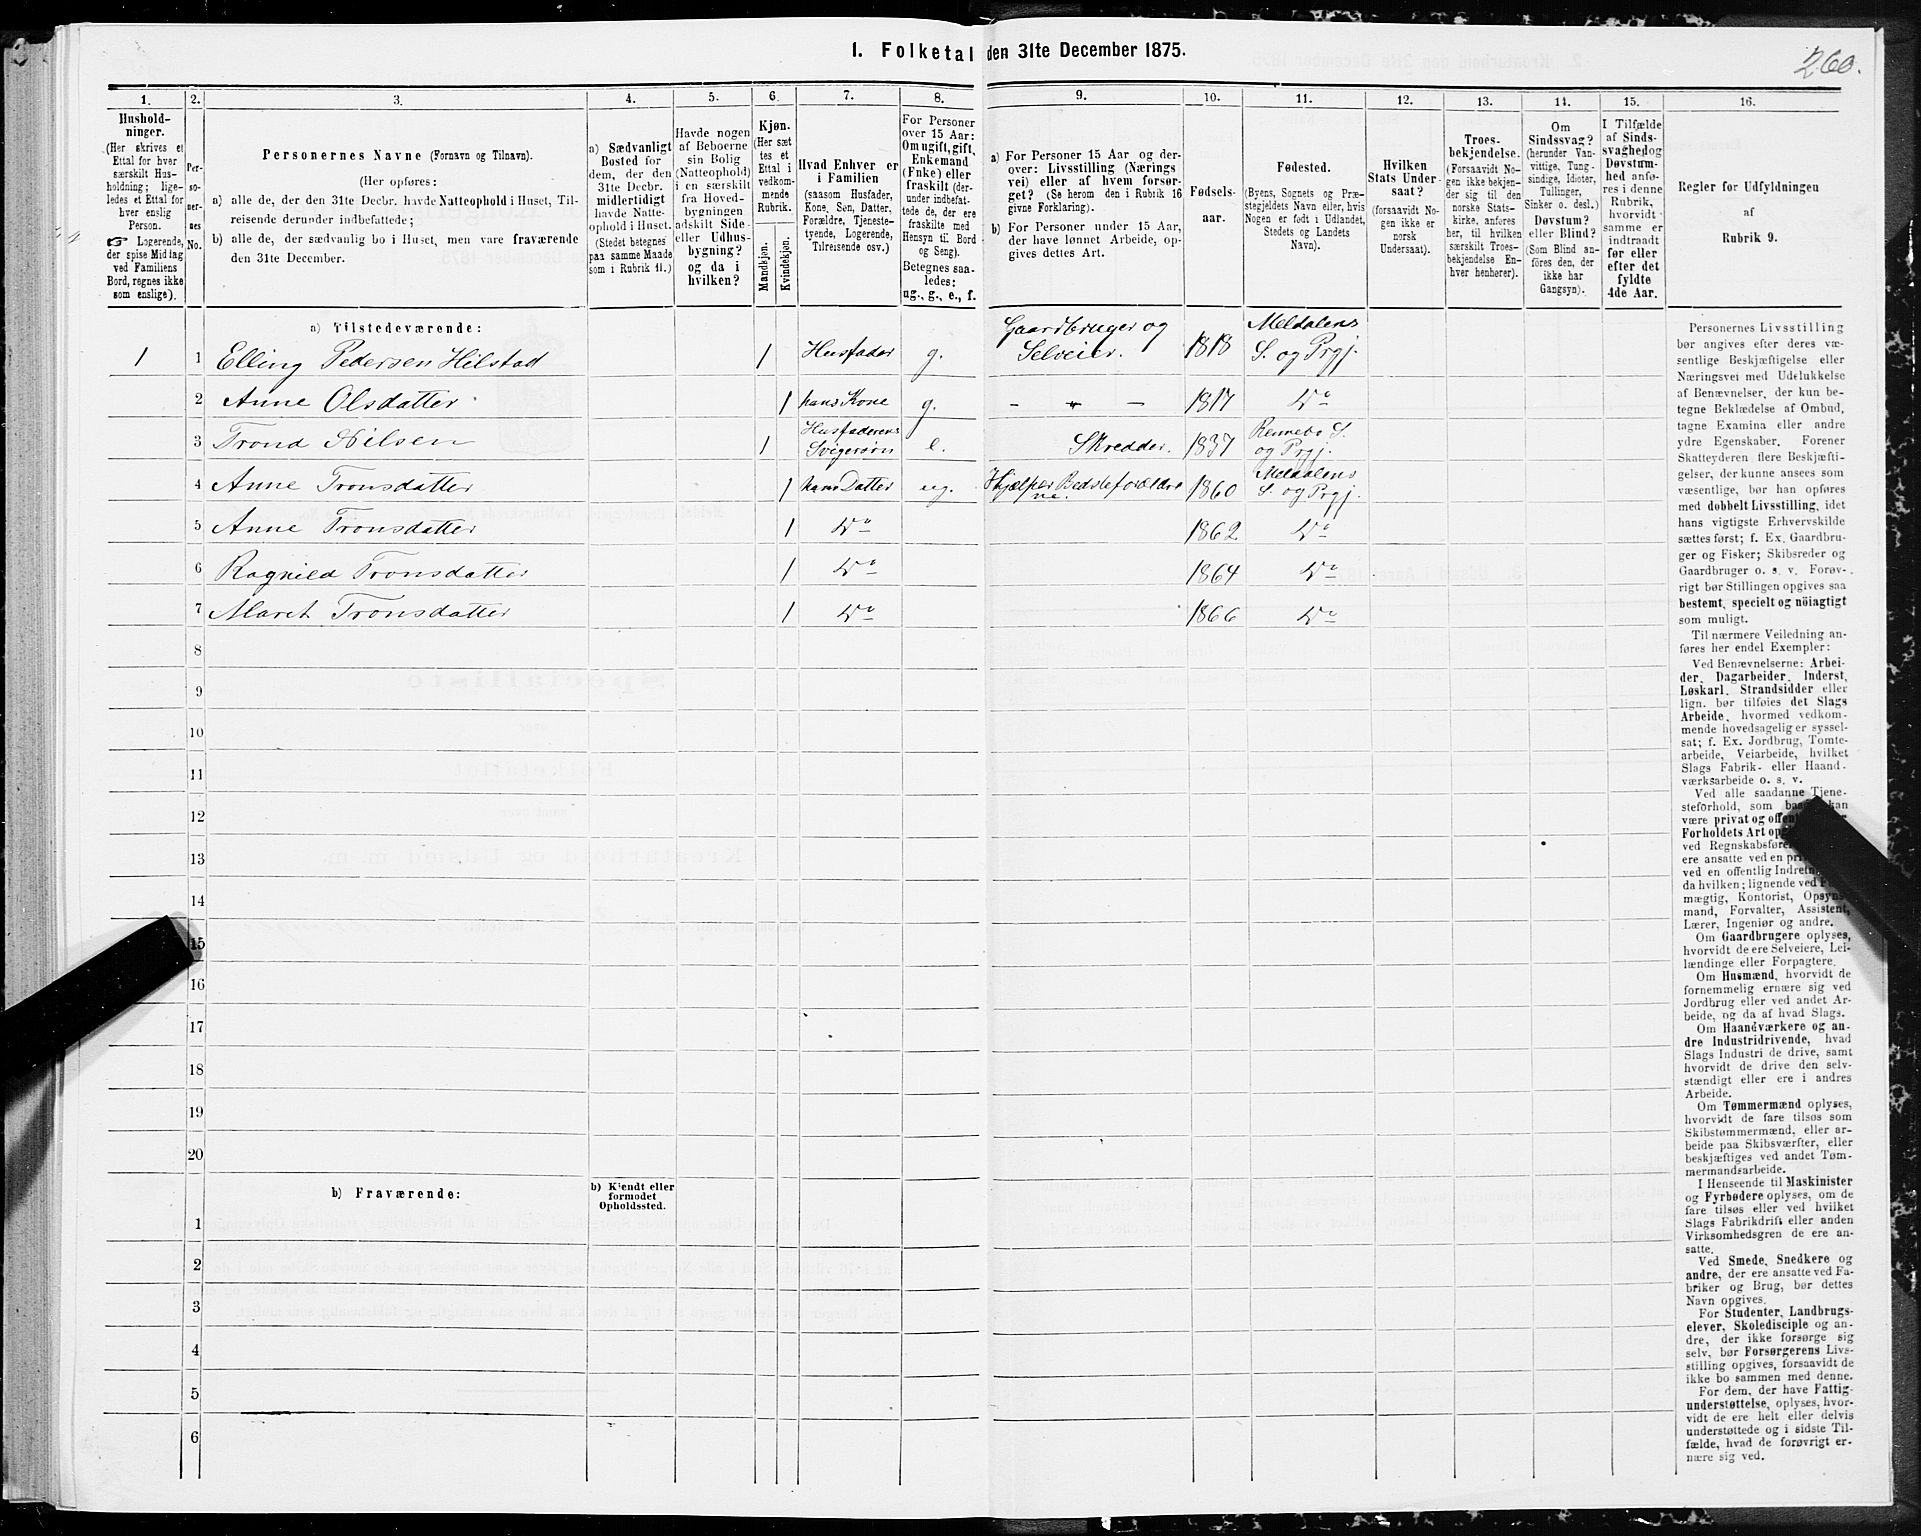 1. Folketal den 31te December 1875.
260.
1. 2. 3. 4. 5. 6. 7. 8. 9. 10. 11. 12. 13. 14. 15. 16.
Hushold-
ninger.
(Her skrives et
Ettal for hver
særskilt Hus-
holdning; lige-
ledes et Ettal for
hver enslig
Person.
☞ Logerende,
der spise Middag
ved Familiens
Bord, regnes ikke
som enslige).
Per-
so-
ner-
nes
No.
Personernes Navne (Fornavn og Tilnavn).
(Her opføres:
a) alle de, der den 31te Decbr. havde Natteophold i Huset, Til-
reisende derunder indbefattede;
b) alle de, der sædvanlig bo i Huset, men vare fraværende
den 31te December.
a) Sædvanligt
Bosted for
dem, der den
31te Decbr.
midlertidigt
havde Natte-
ophold i Huset.
(Stedet betegnes
paa samme Maade
som i Rubrik 11.)
Havde nogen
af Beboerne
sin Bolig
(Natteophold)
i en særskilt
fra Hoved-
bygningen
adskilt Side-
eller Udhus-
bygning?
og da i
hvilken?
Kjøn.
(Her sæt
tes et
Ettal i
vedkom-
mende
Rubrik.
Mandkjøn.
Kvindekjøn.
Hvad Enhver er
i Familien
(saasom Husfader,
Kone, Søn, Datter,
Forældre, Tjeneste-
tyende, Logerende,
Tilreisende osv.)
For Personer
over 15 Aar:
Om ugift, gift,
Enkemand
(Enke) eller
fraskilt (der-
under indbefat-
tede de, der ere
fraskilte med
Hensyn til Bord
og Seng).
Betegnes saa-
ledes:
ug., g., e., f.
a) For Personer 15 Aar og der-
over: Livsstilling (Nærings
vei) eller af hvem forsør-
get? (Se herom den i Rubrik 16
givne Forklaring).
b) For Personer under 15 Aar,
der have lønnet Arbeide, op-
gives dettes Art.
Fødsels-
aar.
Fødested.
(Byens, Sognets og Præ-
stegjeldets Navn eller, hvis
Nogen er født i Udlandet,
Stedets og Landets
Navn).
Hvilken
Stats Under-
saat?
(forsaavidt No-
gen ikke er
norsk
Undersaat).
Troes-
bekjendelse.
(Forsaavidt No-
gen ikke bekjen-
der sig til den
norske Stats-
kirke, anføres
her, til hvilken
særskilt Troes-
bekjendelse En-
hver henhører).
Om
Sindssvag?
(herunder Van-
vittige, Tung-
sindige, Idioter,
Tullinger,
Sinker o. desl.)
Døvstum?
eller Blind?
(Som Blind an-
føres den, der
ikke har
Gangsyn).
I Tilfælde
af Sinds-
svaghed og
Døvstum-
hed anfø-
res i denne
Rubrik,
hvorvidt
samme er
indtraadt
før eller
efter det
fyldte
4de Aar.
Regler for Udfyldningen
af
Rubrik 9.
a) Tilstedeværende:
1 1 Elling Pedersen Hilstad 1 Husfader g. Gaardbruger og Selveier. 1818 Meldalens S. og Prgj.
2 Anne Olsdatter 1 hans Kone g. – " – 1817 Do
3 Trond Nilsen 1 Husfaderens Svigersøn e. Skredder. 1837 Rennebo S. og Prgj.
4 Anne Tronsdatter 1 hans Datter ug. Hjælper Bedsteforældrene. 1860 Meldalens S. og Prgj.
5 Anne Tronsdatter 1 Do 1862 Do
6 Ragnild Tronsdatter 1 Do 1864 Do
7 Maret Tronsdatter 1 Do 1866 Do
8
9
10
11
12
13
14
15
16
17
18
19
20
b) Fraværende:
b) Kjendt eller
formodet
Opholdssted.
1
2
3
4
5
6
Personernes Livsstilling
bør angives efter deres væ-
sentlige Beskjæftigelse eller
Næringsvei med Udelukkelse
af Benævnelser, der kun be-
tegne Beklædelse af Ombud,
tagne Examina eller andre
ydre Egenskaber. Forener
Skatteyderen flere Beskjæfti-
gelser, der kunne ansees som
væsentlige, bør han opføres
med dobbelt Livsstilling, idet
hans vigtigste Erhvervskilde
sættes først; f. Ex. Gaardbru-
ger og Fisker; Skibsreder og
Gaardbruger o. s. v. Forøv-
rigt bør Stillingen opgives saa
bestemt, specielt og nöiagtigt
som muligt.
Til nærmere Veiledning an-
føres her endel Exempler:
Ved Benævnelserne: Arbei-
der, Dagarbeider, Inderst,
Løskarl, Strandsidder eller
lign. bør tilføies det Slags
Arbeide, hvormed vedkom-
mende hovedsagelig er syssel-
sat; f. Ex. Jordbrug, Tomte-
arbeide, Veiarbeide, hvilket
Slags Fabrik- eller Haand-
værksarbeide o. s. v.
Ved alle saadanne Tjene-
steforhold, som kan
være privat og
Forholdets Art
ved Regnskabsføre
ere ansatte ved en
ved en offentlig
da hvilken; lignende ved
mægtig, Kontorist, Opsyns-
mand, Forvalter, Assistent,
Lærer, Ingeniør og andre.
Om Gaardbrugere oplyses,
hvorvidt de ere Selveiere, Lei-
lændinge eller Forpagtere.
Om Husmænd, hvorvidt de
fornemmelig ernære sig ved
Jordbrug eller ved andet Ar-
beide, og da af hvad Slags.
Om Haandværkere og an-
dre Industridrivende, hvad
Slags Industri de drive, samt
hvorvidt de drive den selv-
stændigt eller ere i andres
Arbeide.
Om Tømmermænd oplyses,
hvorvidt de fare tilsøs som
Skibstømmermænd, eller ar-
beide paa Skibsværfter, eller
beskjæftiges ved andet Tøm-
mermandsarbeide.
I Henseende til Maskinister
og Fyrbødere oplyses, om de
fare tilsøs eller ved hvilket
Slags Fabrikdrift eller anden
Virksomhedsgren de ere an-
satte.
Ved Smede, Snedkere og
andre, der ere ansatte ved Fa-
briker og Brug, bør dettes
Navn opgives.
For Studenter, Landbrugs-
elever, Skoledisciple og an-
dre, der ikke forsørge sig
selv, bør Forsørgerens Livs-
stilling opgives, forsaavidt de
ikke bo sammen med denne.
For dem, der have Fattig-
understøttelse, oplyses, hvor-
vidt de ere helt eller delvis
understøttede og i sidste Til-
fælde, hvad de forøvrigt er-
nære sig ved.